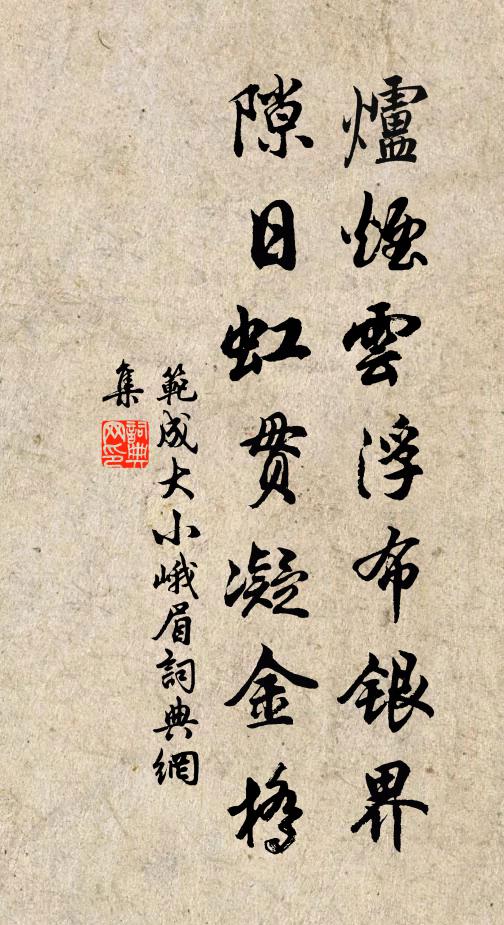 爐煙雲浮布銀界
隙日虹貫凝金橋
範成大小峨眉詞典網
集
詞典
网印